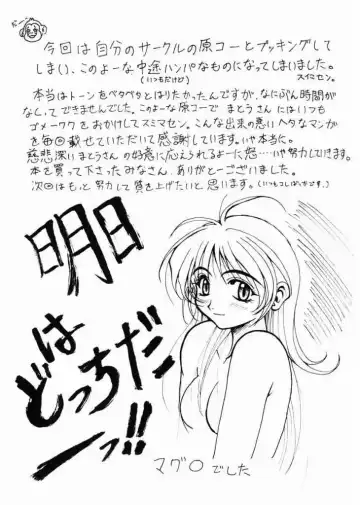 今回は自分のサークルの原コーとブッキングして
しまい、このよーな中途ハンパなものになってしまいました。
(いつもだけど)
スイミセン。
本当はトーンをベタベタとはりたかったんですが、なにぶん時間が
なくってできませんでした。このよーな原コーで まとうさんにはいつも
ゴメーワクをおかけしてスミマセン。こんな出来の悪いヘタなマンガ
を毎回載せていただいて感謝しています。いや本当に。
慈悲深いまとうさんの好意に応えられるよーに怒…いや努力していきます。
本を買って下さったみなさん、ありがとーございました。
次回はもっと努力して質を上げたいと思います。
明日
は
どっちだ
ーっ!!
マグロでした